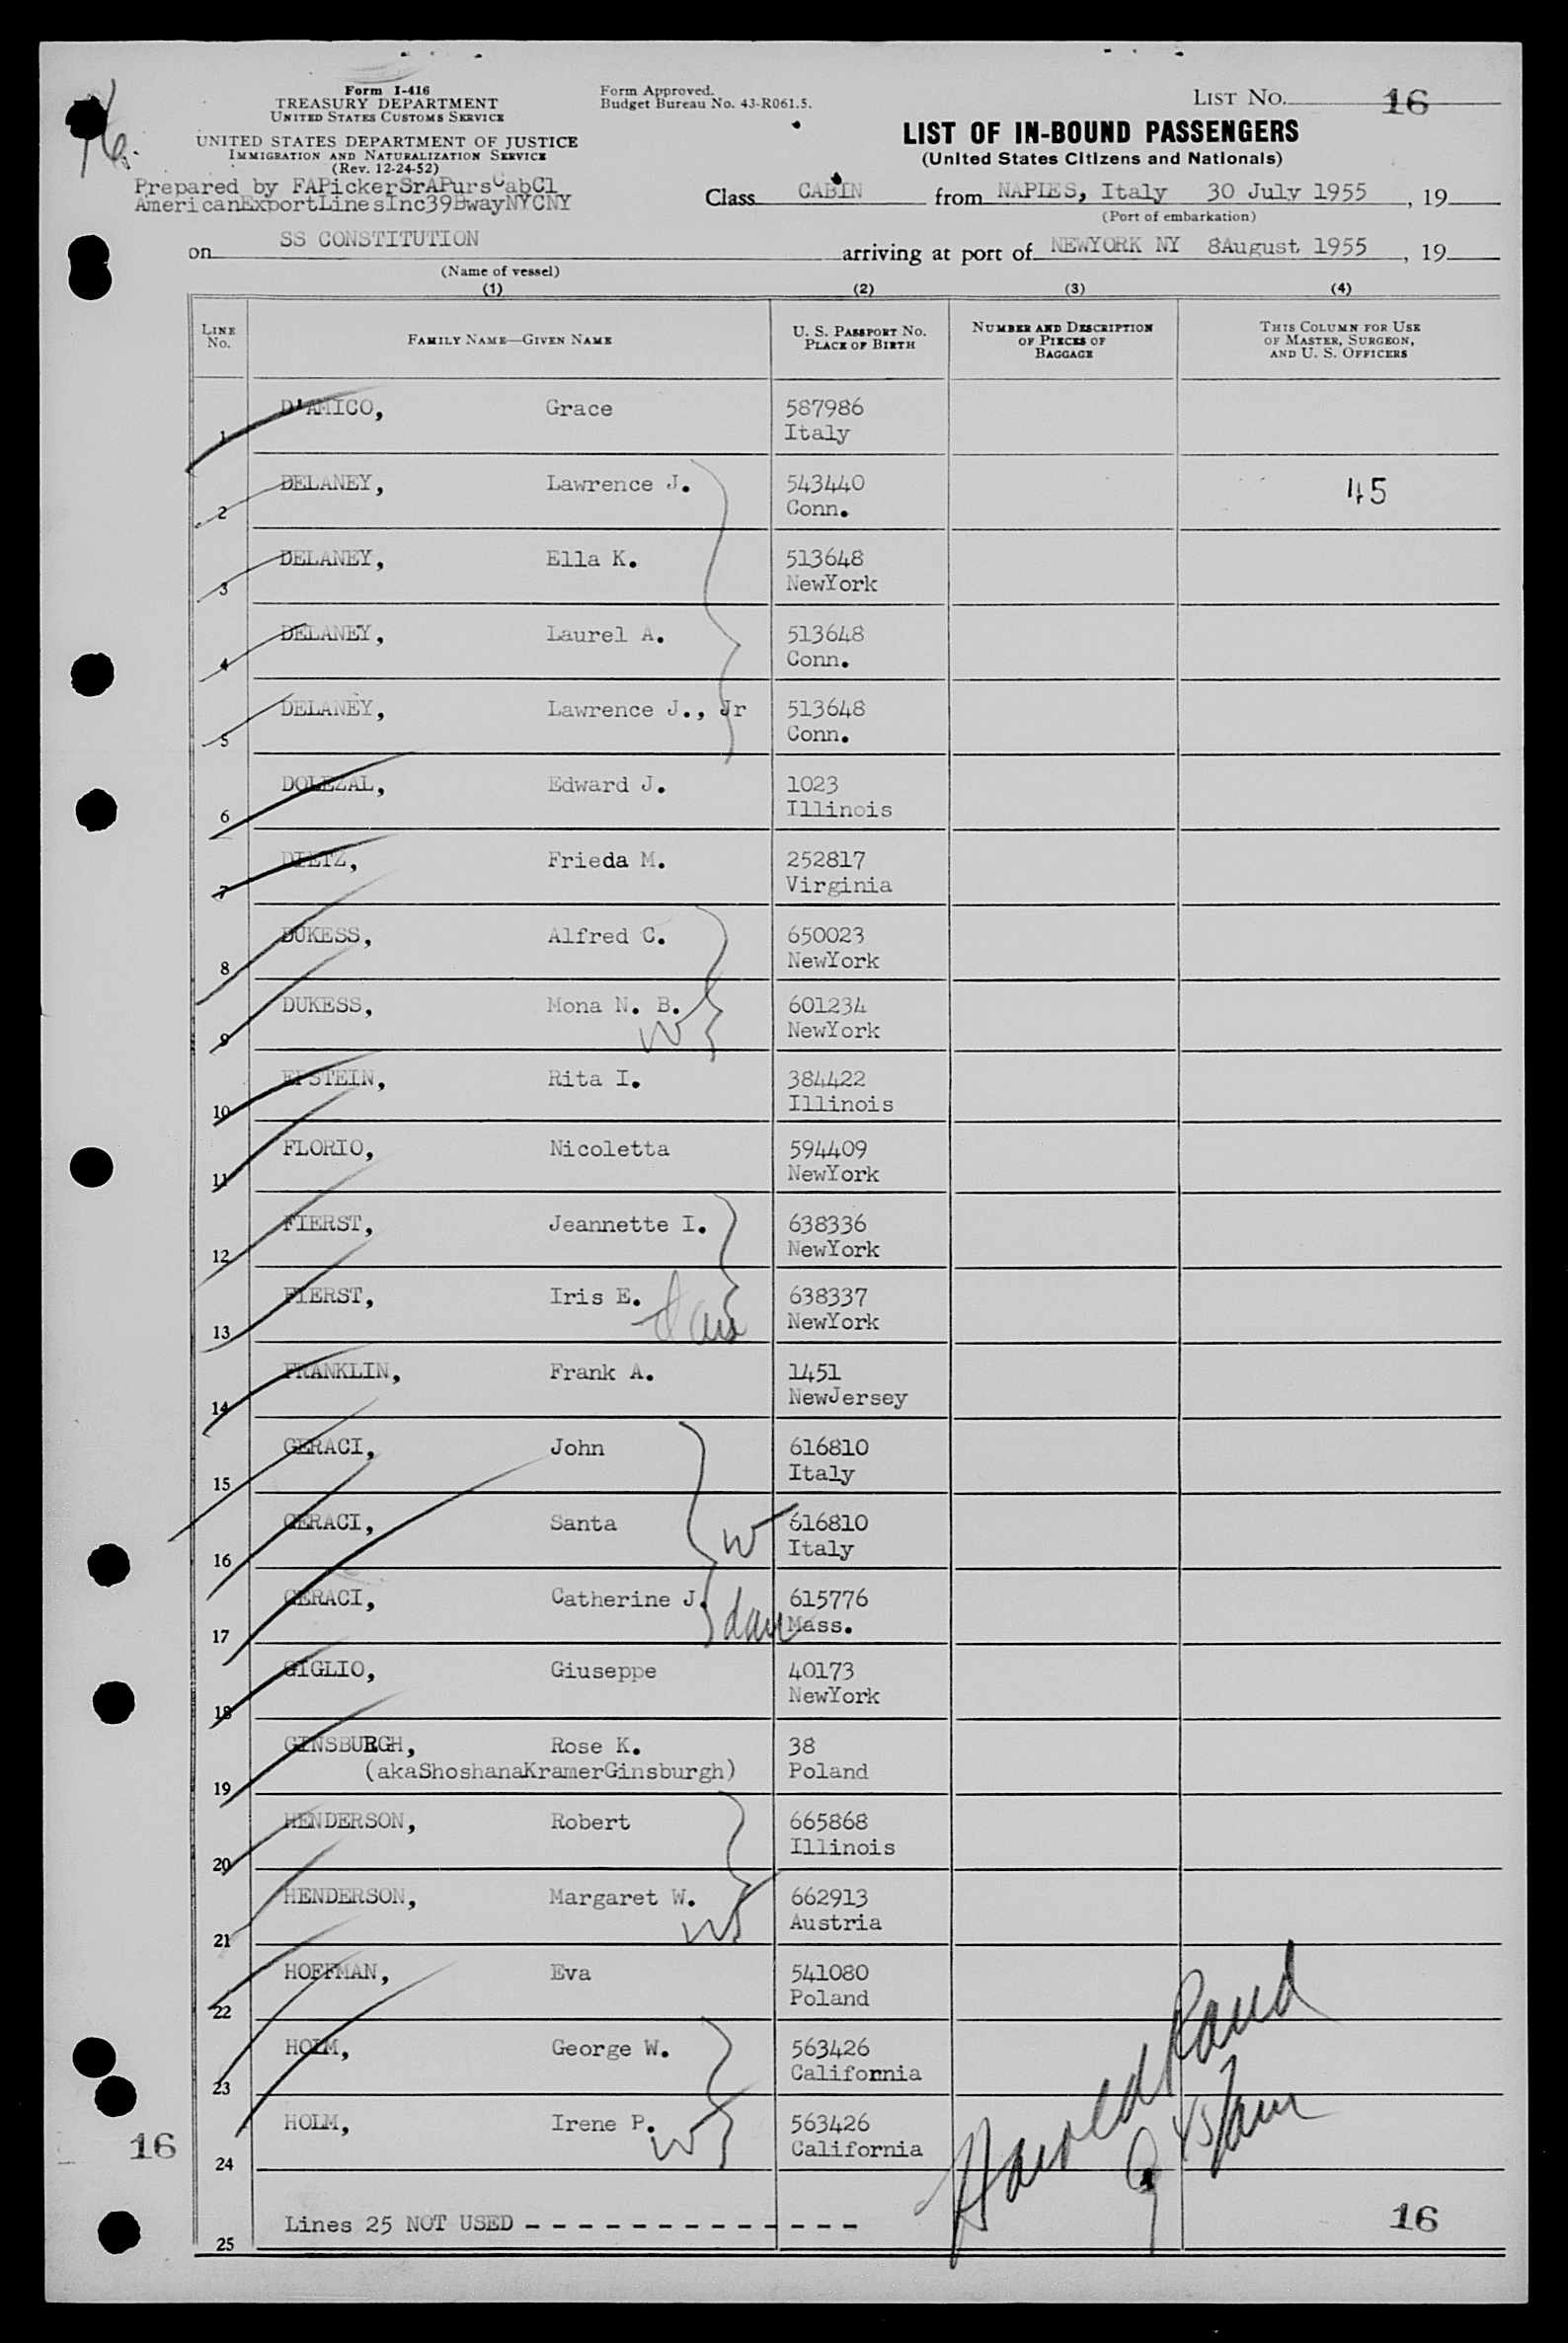 Form I-416
TREASURY DEPARTMENT
UNITED STATES CUSTOMS SERVICE
UNITED STATES DEPARTMENT OF JUSTICE
IMMIGRATION AND NATURALIZATION SERVICE
(Rev. 12-24-52)
Prepared by FAPickerSrAPursCabCl
AmericanExportLinesInc39BwayNYCNY
Form Approved.
Budget Bureau No. 43-R061.5.
LIST NO. 16
LIST OF IN-BOUND PASSENGERS
(United States Citizens and Nationals)
Class CABIN from NAPLES, Italy 30 July 1955, 19
(Port of embarkation)
on SS CONSTITUTION arriving at port of NEWYORK NY 8August 1955, 19
(Name of vessel)
(1) (2) (3) (4)
LINE No. FAMILY NAME—GIVEN NAME U. S. PASSPORT NO. PLACE OF BIRTH NUMBER AND DESCRIPTION OF PIECES OF BAGGAGE THIS COLUMN FOR USE OF MASTER, SURGEON, AND U. S. OFFICERS
1 D'AMICO, Grace 587986
Italy
2 DELANEY, Lawrence J. 543440 45
Conn.
3 DELANEY, Ella K. 513648
NewYork
4 DELANEY, Laurel A. 513648
Conn.
5 DELANEY, Lawrence J., Jr 513648
Conn.
6 DOLEZAL, Edward J. 1023
Illinois
7 DIETZ, Frieda M. 252817
Virginia
8 DUKESS, Alfred C. 650023
NewYork
9 DUKESS, Mona N. B. 601234
W NewYork
10 EPSTEIN, Rita I. 384422
Illinois
11 FLORIO, Nicoletta 594409
NewYork
12 FIERST, Jeannette I. 638336
NewYork
13 FIERST, Iris E. 638337
dau NewYork
14 FRANKLIN, Frank A. 1451
NewJersey
15 GERACI, John 616810
Italy
16 GERACI, Santa W 616810
Italy
17 GERACI, Catherine J. 615776
dau Mass.
18 GIGLIO, Giuseppe 40173
NewYork
19 GINSBURGH, Rose K. 38
(akaShoshanaKramerGinsburgh) Poland
20 HENDERSON, Robert 665868
Illinois
21 HENDERSON, Margaret W. 662913
W Austria
22 HOFFMAN, Eva 541080
Poland
23 HOLM, George W. 563426
California
24 HOLM, Irene P. 563426
W California
Harold Rand
16
25 Lines 25 NOT USED - - - - - - - - - - - - -
16